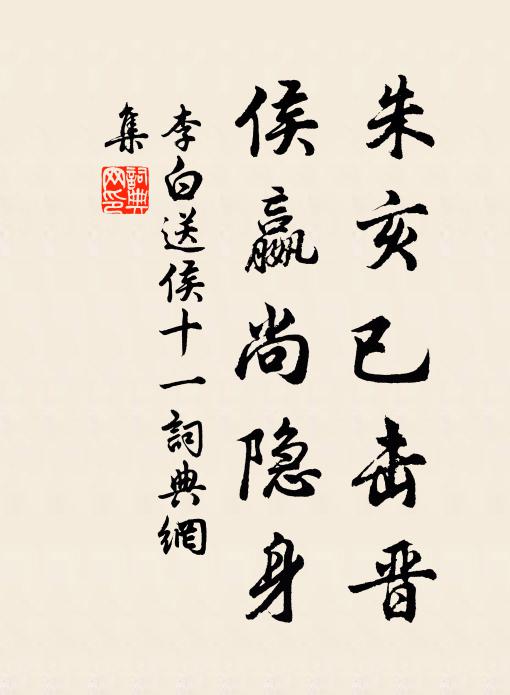 朱亥已击晋
侯嬴尚隐身
李白送侯十一詞典網
集
詞典网印